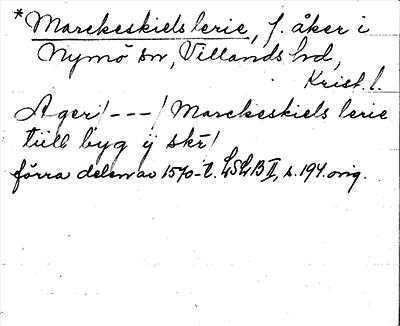 *Marckeskiels lerie, f. åker i
Nymö sn, Villands hd,
Krist. l.
Ager/---/Marckeskiels lerie
tiill byg ij skr/
förra delen av 1570-t. LSLB II, s. 194. orig.